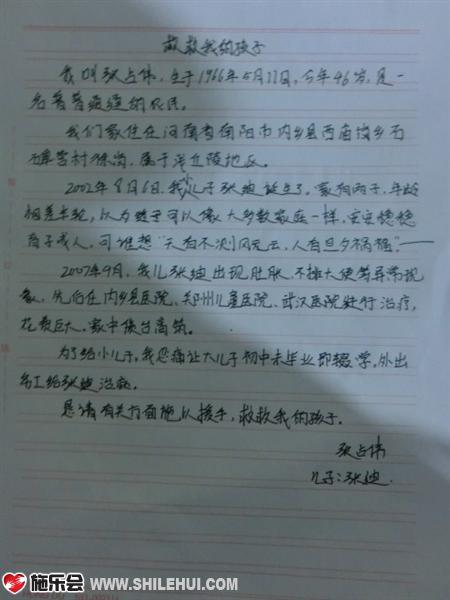 救救我的孩子
我叫张占伟,生于1966年5月11日,今年46岁,是一
名普普通通的农民。
我们家住在河南省南阳市内乡县西庙岗乡石
堂村徐岗,属于浅丘陵地区。
2002年8月6日,我儿子张迪诞生了,家有两子,年龄
相差半轮,以为终于可以像大多数家庭一样,安安稳稳
育子成人,可谁想“天有不测风云,人有旦夕祸福”——
2007年9月,我儿张迪出现肚胀、不排大便等异常现
象,先后在内乡县医院、郑州儿童医院、武汉医院进行治疗,
花费巨大,家中债台高筑。
为了给小儿子,我忍痛让大儿子初中未毕业即辍学,外出
务工给张迪治病。
恳请有关方面施以援手,救救我的孩子.
张占伟
儿子:张迪.
施乐会
WWW.SHILEHUI.COM